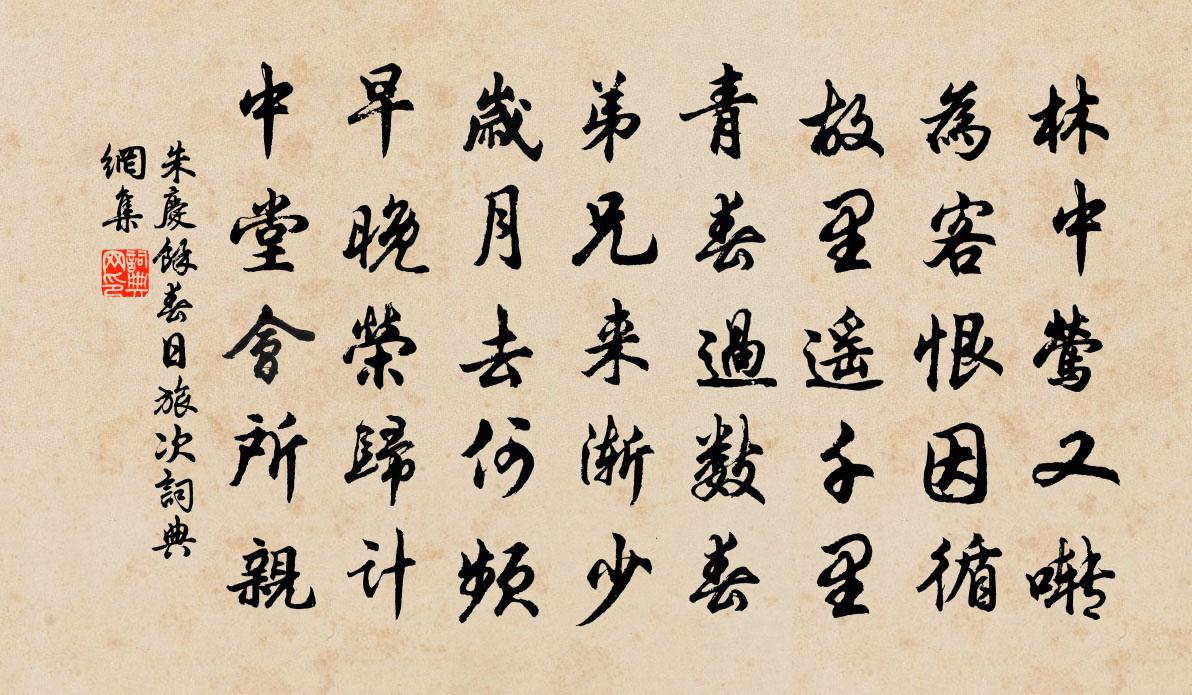 林中鶯又囀
為客恨因循
故里遥千里
青春過數春
弟兄来漸少
歳月去何頻
早晚榮歸计
中堂會所親
朱慶餘春日旅次詞典
網集
詞典網印